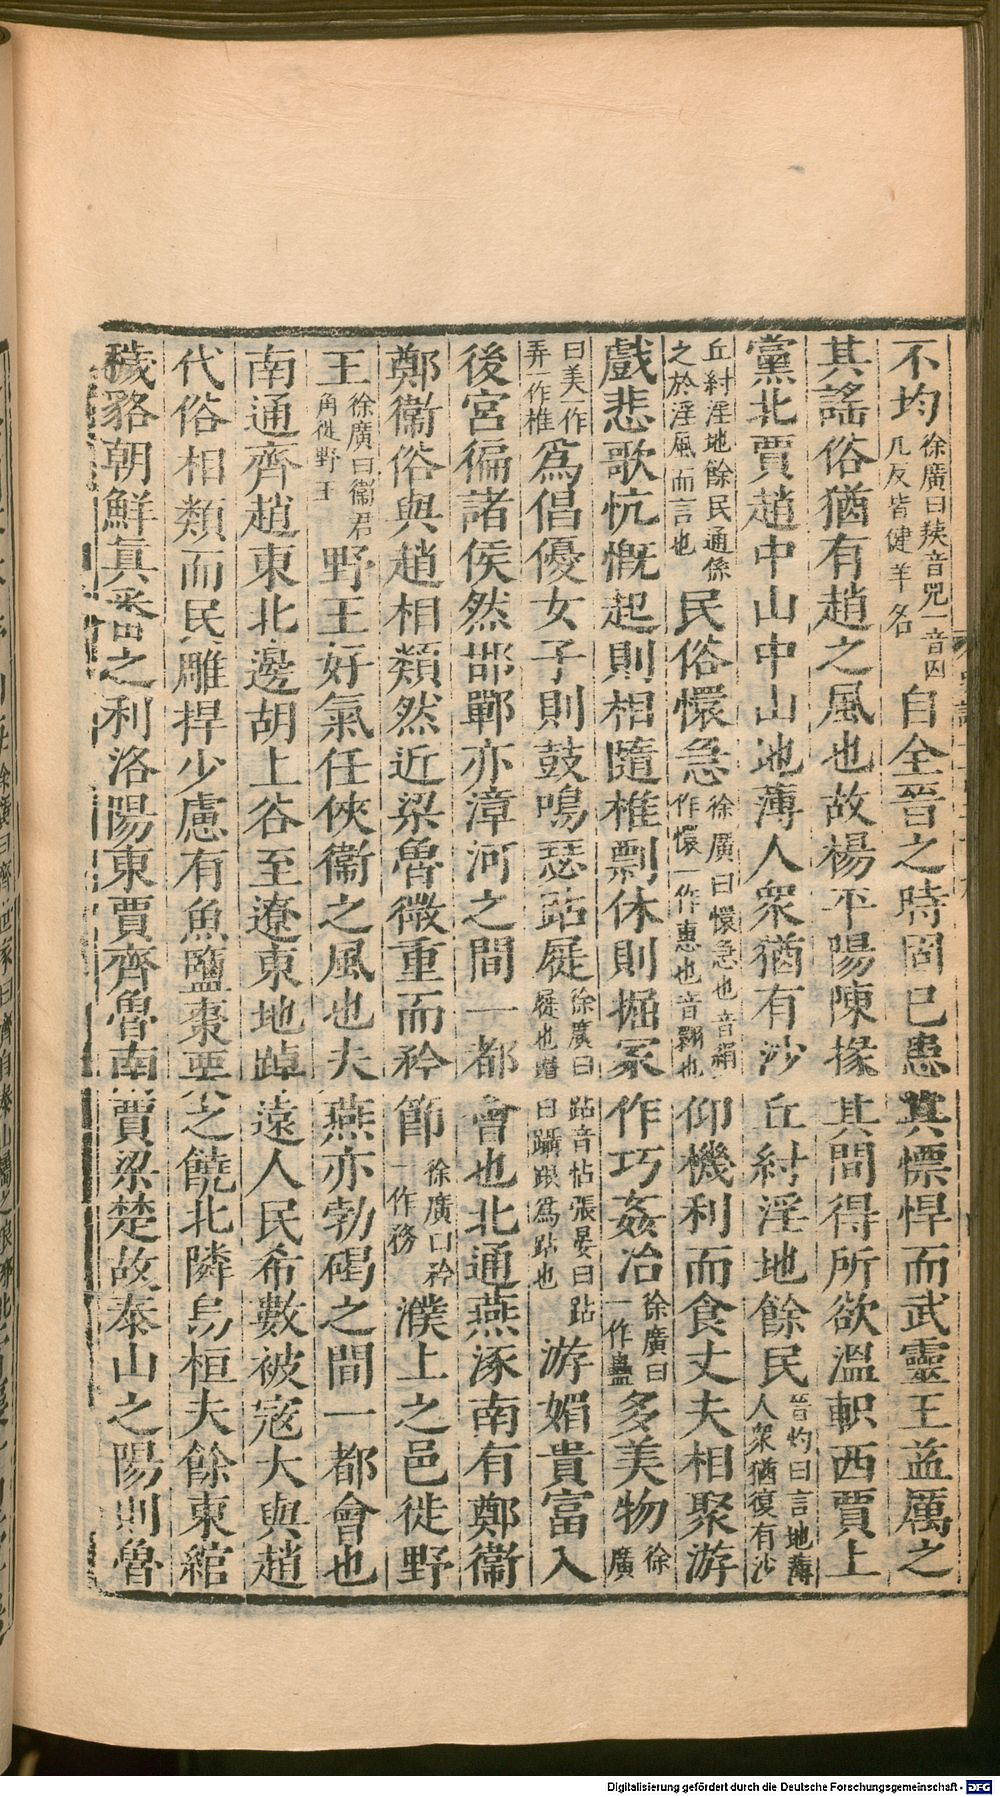 不均徐廣曰㹟音兕一音囚几反皆健羊名自全晉之時固已患其慓悍而武靈王益厲之
其謠俗猶有趙之風也故楊平陽陳掾其間得所欲溫軹西賈上
黨北賈趙中山中山地薄人衆猶有沙丘紂淫地餘民晉灼曰言地薄人衆猶復有沙
丘紂淫地餘民通係之於淫風而言也民俗懁急徐廣曰懁急也音絹一作懷一作惠也音翾也仰機利而食丈夫相聚游
戲悲歌忼慨起則相隨椎剽休則掘冢作巧姦冶徐廣曰一作蠱多美物徐廣
曰美一作弄一作椎爲倡優女子則鼓鳴瑟跕屣徐廣曰跕音帖張晏曰跕屣也瓚曰躡跟爲跕也游媚貴富入
後宮徧諸侯然邯鄲亦漳河之間一都會也北通燕涿南有鄭衞
鄭衞俗與趙相類然近梁魯微重而矜節徐廣曰矜一作務濮上之邑徙野
王徐廣曰衞君角徙野王野王好氣任俠衞之風也夫燕亦勃碣之間一都會也
南通齊趙東北邊胡上谷至遼東地踔遠人民希數被寇大與趙
代俗相類而民雕捍少慮有魚鹽棗栗之饒北隣烏桓夫餘東綰
穢貉朝鮮真番之利洛陽東賈齊魯南賈梁楚故泰山之陽則魯
Digitalisierung gefördert durch die Deutsche Forschungsgemeinschaft - DFG